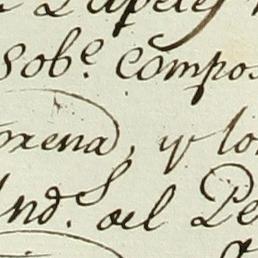 Papeles
Sobe. compos
orena, y lo
Ind.s del Pe